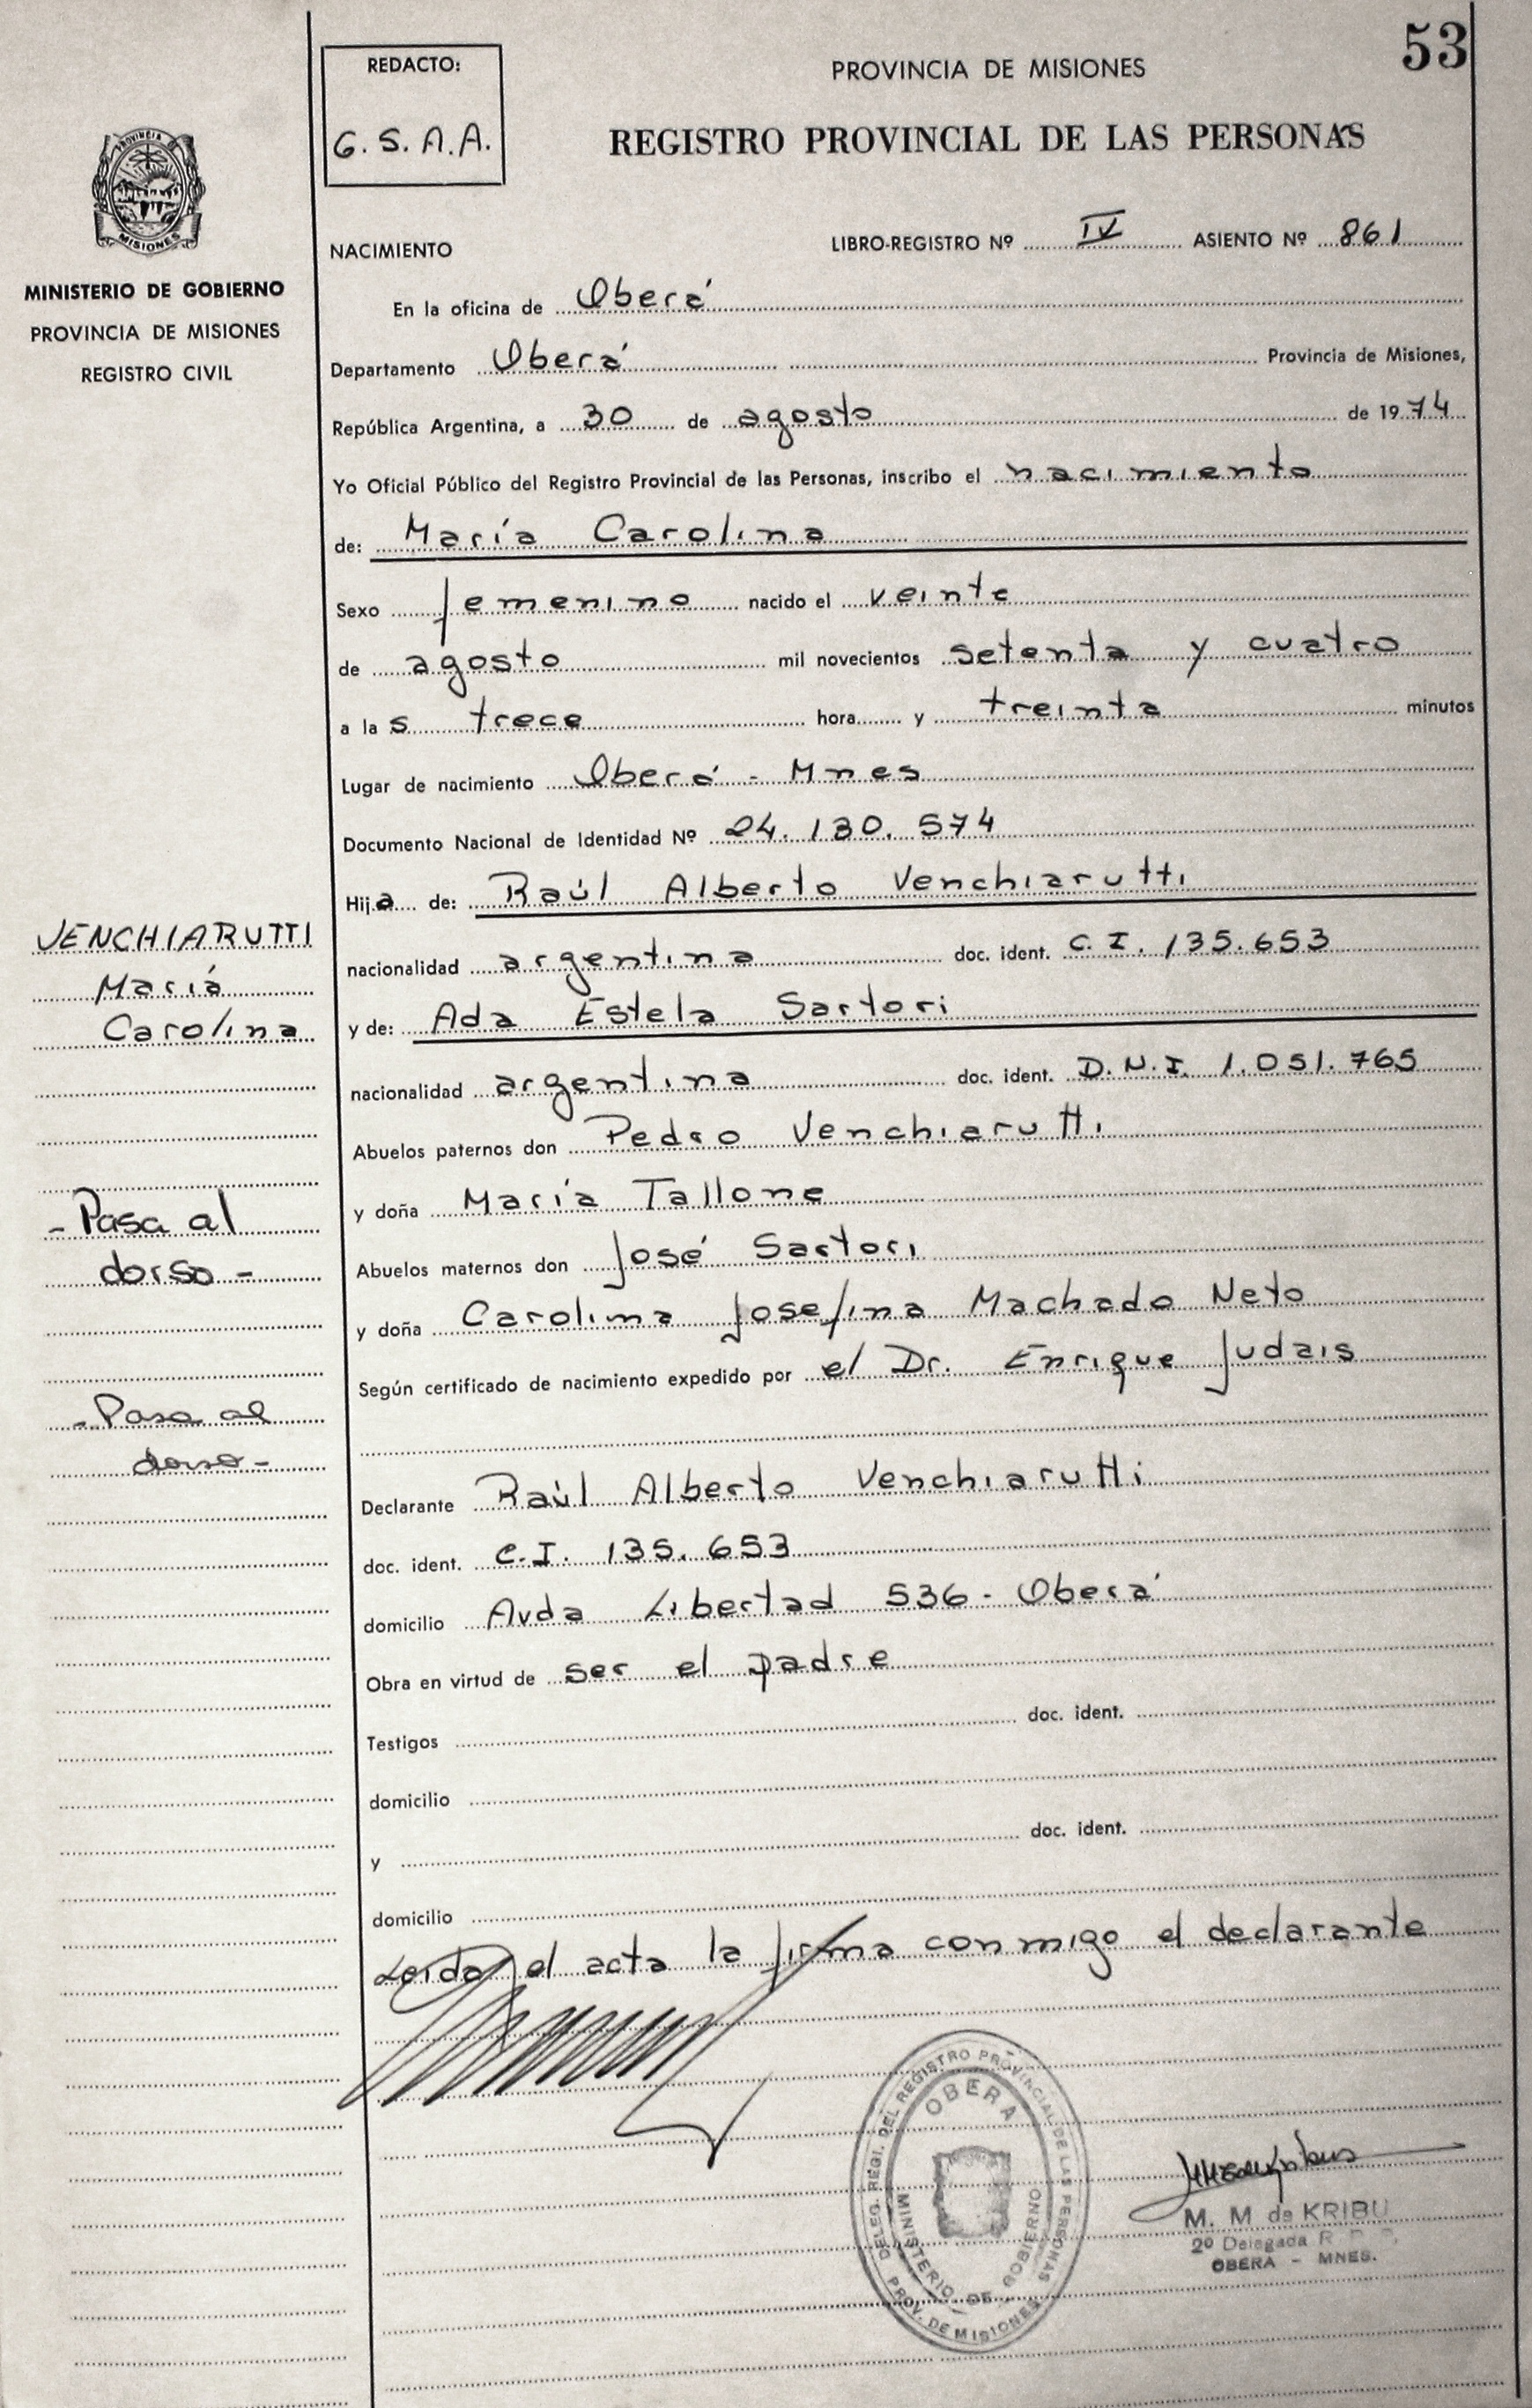 53
REDACTO:
G. S. A. A.
PROVINCIA DE MISIONES
REGISTRO PROVINCIAL DE LAS PERSONAS
PROVINCIA
MISIONES
MINISTERIO DE GOBIERNO
PROVINCIA DE MISIONES
REGISTRO CIVIL
NACIMIENTO LIBRO-REGISTRO Nº IV ASIENTO Nº 861
En la oficina de Oberá
Departamento Oberá Provincia de Misiones,
República Argentina, a 30 de agosto de 1974
Yo Oficial Público del Registro Provincial de las Personas, inscribo el nacimiento
de: María Carolina
Sexo femenino nacido el veinte
de agosto mil novecientos setenta y cuatro
a las trece hora y treinta minutos
Lugar de nacimiento Oberá - Mnes
Documento Nacional de Identidad Nº 24.130.574
Hija de: Raúl Alberto Venchiarutti
nacionalidad argentina doc. ident. C. I. 135.653
y de: Ada Estela Sartori
nacionalidad argentina doc. ident. D.N.I. 1.051.765
Abuelos paternos don Pedro Venchiarutti
y doña María Tallone
Abuelos maternos don José Sartori
y doña Carolina Josefina Machado Neto
Según certificado de nacimiento expedido por el Dr. Enrique Judais
Declarante Raúl Alberto Venchiarutti
doc. ident. C.I. 135.653
domicilio Avda Libertad 536 - Oberá
Obra en virtud de ser el padre
Testigos doc. ident.
domicilio
y doc. ident.
domicilio
Leída el acta la firma conmigo el declarante
VENCHIARUTTI
María
Carolina
- Pasa al
dorso -
- Pasa al
dorso -
DELEG. REGI. DEL REGISTRO PROVINCIAL DE LAS PERSONAS
OBERA
MINISTERIO DE GOBIERNO
PROV. DE MISIONES
M. M de KRIBU
2º Delegada R. P. P.
OBERA - MNES.